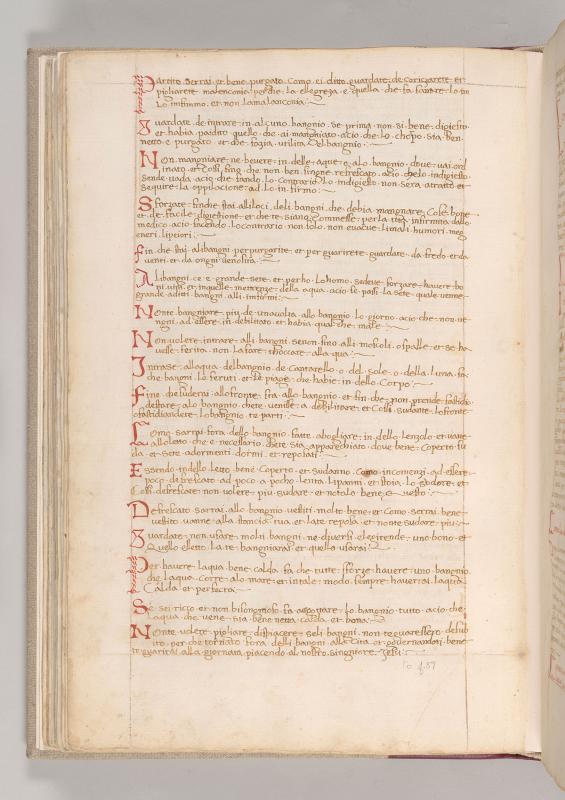 Partito serrai et bene purgato como ei ditto guardate de coriczarete et
pigliarete malenconia perche la ellegreza e quella che fa sanare lo in
lo infirmo et non la malanconia
Guardate de intrare in alcuno bangnio se prima non si bene digiesto
et habia paidito quello che ai mangiato acio che lo chorpo sia ben
netto e purgato et che fazia utilita Del bangnio
Non mangniare ne bevere in delle aque e alo bangnio dove vai ord
inato et cossi fino che non ben singne refrescato acio chelo indigesto
sende vada acio che fando lo contrario lo indigesto non sera atratto et
sequire la oppilacione ad lo infirmo
Sforzate finche stai alli loci deli bangni che debia mangnare cose bone
et de facile digestione et che te siano commesse per la tua infirmita dallo
medico acio facendo lo contrario non solo non evacue li mali humori
Fin che stai ali bangni per purgarite et per guarirete guardate da fredo et da
venti et da ongni
Ali bangni ce e grande sete et percho lo homo sedeve forzare havere bo
ni vini et in quelle della aqua acio se passi la sete quale vene
grande a diti bangni alli infirmi
Nonte bangniare piu de una volta allo bangnio lo giorno acio che non ve
ngni ad essere in debilitato et habia qualche male
Non volere intrare alli bangni senon fino alli o spalle et se ha
vesse ferita non la fare alla qua
Intrase alla qua del bangnio de cantarello o del sole o della luna fa
che bangni lo feruti et le piage che habie in dello corpo
Fine che suderai allo fronte sta allo bangnio et fin che non prende fastidio
de stare alo bangnio chete venisse a debilitare et cossi sudante lo fronte
o fastidiandete lo bangnio te parti
Como sarrai fora dello bangnio fatte abogliare in dello lenzolo et vane
allo letto che e necessario chete sia apparechiato dove bene coperto su
da et sete adormenti dormi et reposati
Essendo in dello letto bene coperto et sudanno como incomenzi ad essere
poco defrescato ad poco a pocho lenta li panni et stoia lo sudore et
cossi defrescate non volere piu sudare et notalo bene questo
Defrescato sarrai allo bangnio vestiti molto bene et como serrai bene
vestito vanne alla stancia tua et late reposa et nonte sudare piu
Guardate non usare molti bangni ne diversi eligirende uno bono et
quello eletto la te bangniarai et quello usarai
Per havere laqua bene calda fa che tutte sforze havere uno bangnio
che laqua corre alo mare et in tale modo sempre haverrai laqua
calda et perfecta
Se sei ricco et non bisongnoso fa assectare lo bangnio tutto acio che
laqua che vene sia bene netta calda et bona
Nonte volere pigliare dispiacere seli bangni non te guaressero de sub
ito perche tornato fora delli bangni alla cita et governandoti bene
te guarirai alla giornata piacendo al nostro singniore Jesu